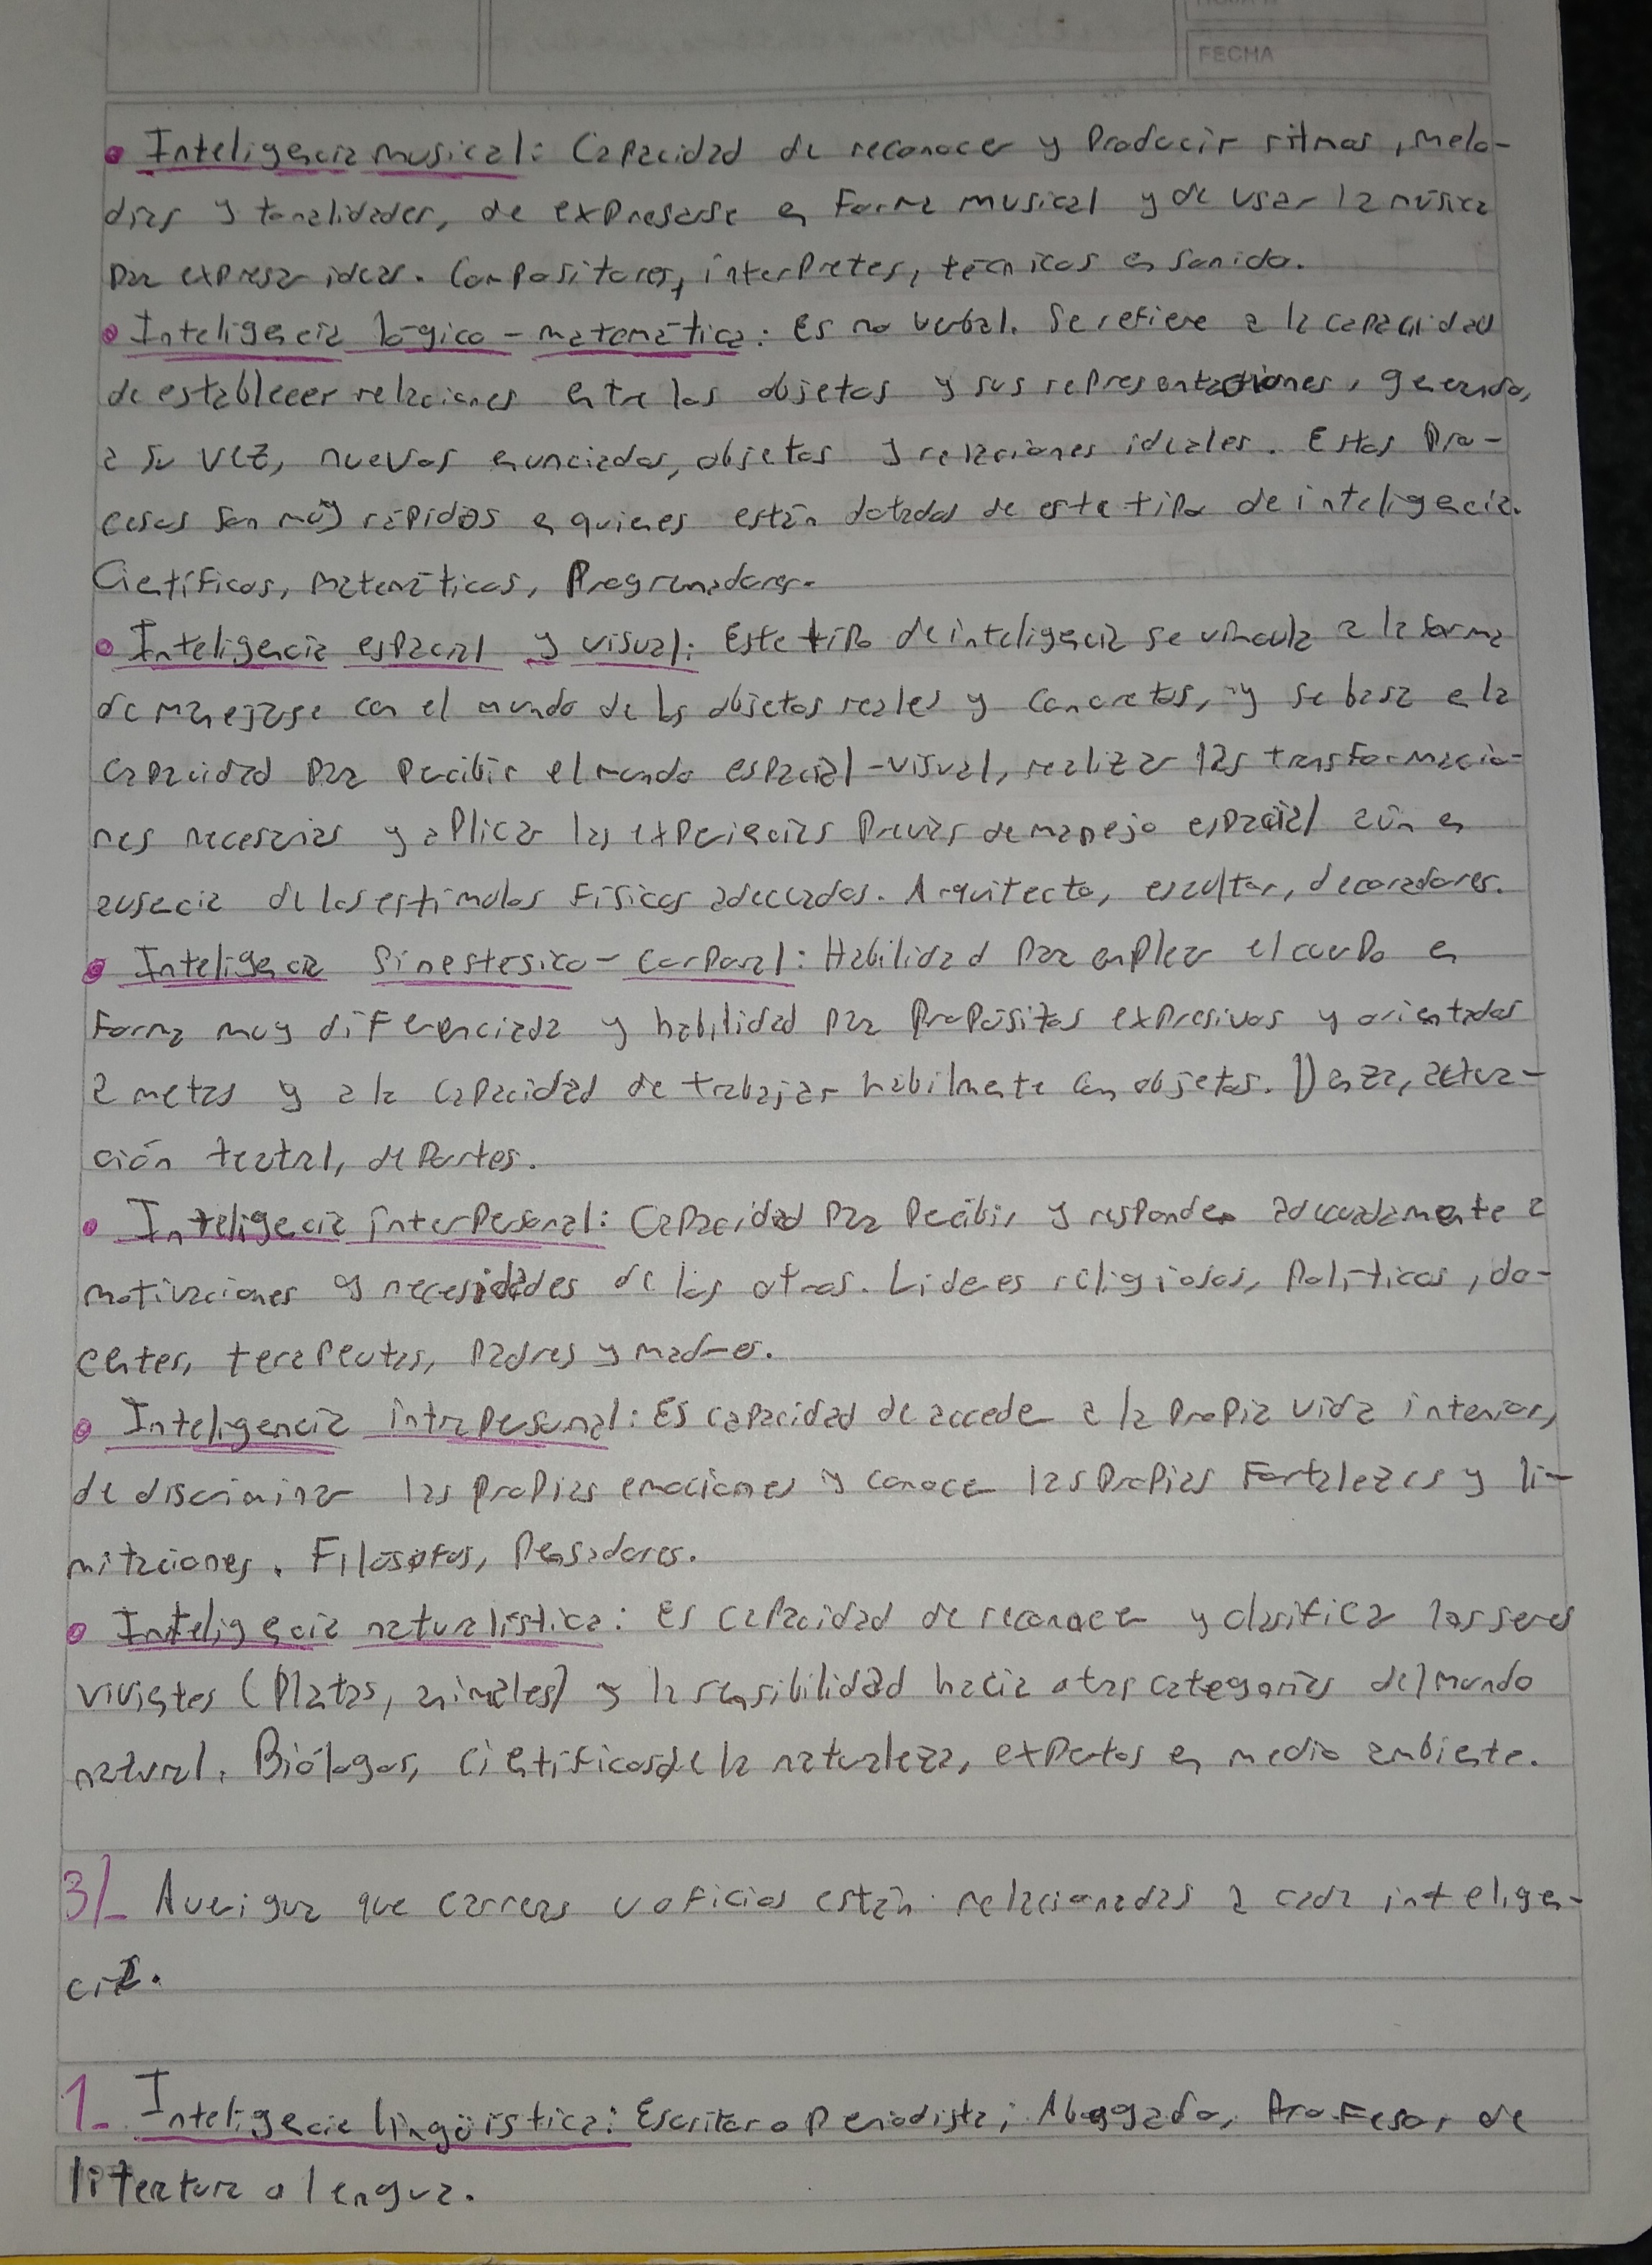 FECHA
• Inteligencia musical: Capacidad de reconocer y Producir ritmos, melo-
dias y tonalidades, de expresarse en Forma musical y de usar la música
par expresar ideas. Compositores, interpretes, técnicos en sonido.
• Inteligencia lógico-matemática: Es no verbal. Se refiere a la capacidad
de establecer relaciones entre los objetos y sus representaciones, generando,
a su vez, nuevos enunciados, objetos y relaciones ideales. Estos Pro-
cesos son muy rápidos en quienes están dotados de este tipo de inteligencia.
Científicos, matemáticos, Programadores.
• Inteligencia espacial y visual: Este tipo de inteligencia se vincula a la forma
de manejarse con el mundo de los objetos reales y concretos, y se basa en la
capacidad para percibir el mundo espacial-visual, realizar las transformacio-
nes necesarias y aplicar las experiencias previas de manejo espacial aún en
ausencia de los estímulos físicos adecuados. Arquitecto, escultor, decoradores.
• Inteligencia Sinestesico-corporal: Habilidad para emplear el cuerpo en
forma muy diferenciada y habilidad para propósitos expresivos y orientados
a metas y a la capacidad de trabajar habilmente con objetos. Danza, actua-
ción teatral, deportes.
• Inteligencia interpersonal: Capacidad para percibir y responder adecuadamente a
motivaciones y necesidades de los otros. Lideres religiosos, Políticos, do-
centes, terapeutas, padres y madres.
• Inteligencia intrapersonal: Es capacidad de acceder a la propia vida interior,
de discriminar las propias emociones y conocer las propias fortalezas y li-
mitaciones. Filósofos, Pensadores.
• Inteligencia naturalística: Es capacidad de reconocer y clasificar los seres
vivientes (Platas, animales) y la sensibilidad hacia otras categorías del mundo
natural. Biólogos, científicos de la naturaleza, expertos en medio ambiente.
3/_ Averigua que carreras u oficios están relacionadas a cada inteligen-
cia.
1_ Inteligencia lingüística: Escritor o Periodista; Abogado, Profesor de
literatura o lengua.